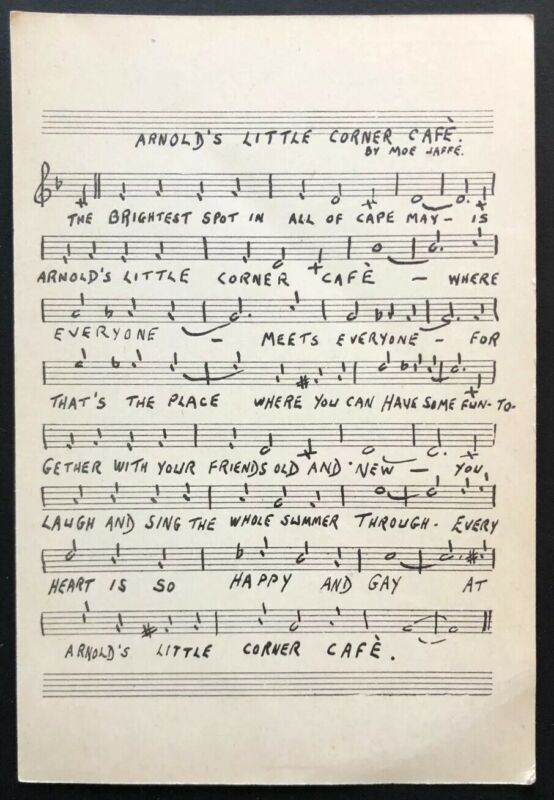 ARNOLD'S LITTLE CORNER CAFÈ.
BY MOE JAFFE.
THE BRIGHTEST SPOT IN ALL OF CAPE MAY - IS
ARNOLD'S LITTLE CORNER CAFÈ - WHERE
EVERYONE - MEETS EVERYONE - FOR
THAT'S THE PLACE WHERE YOU CAN HAVE SOME FUN-TO-
GETHER WITH YOUR FRIENDS OLD AND NEW - YOU
LAUGH AND SING THE WHOLE SUMMER THROUGH - EVERY
HEART IS SO HAPPY AND GAY AT
ARNOLD'S LITTLE CORNER CAFÈ.